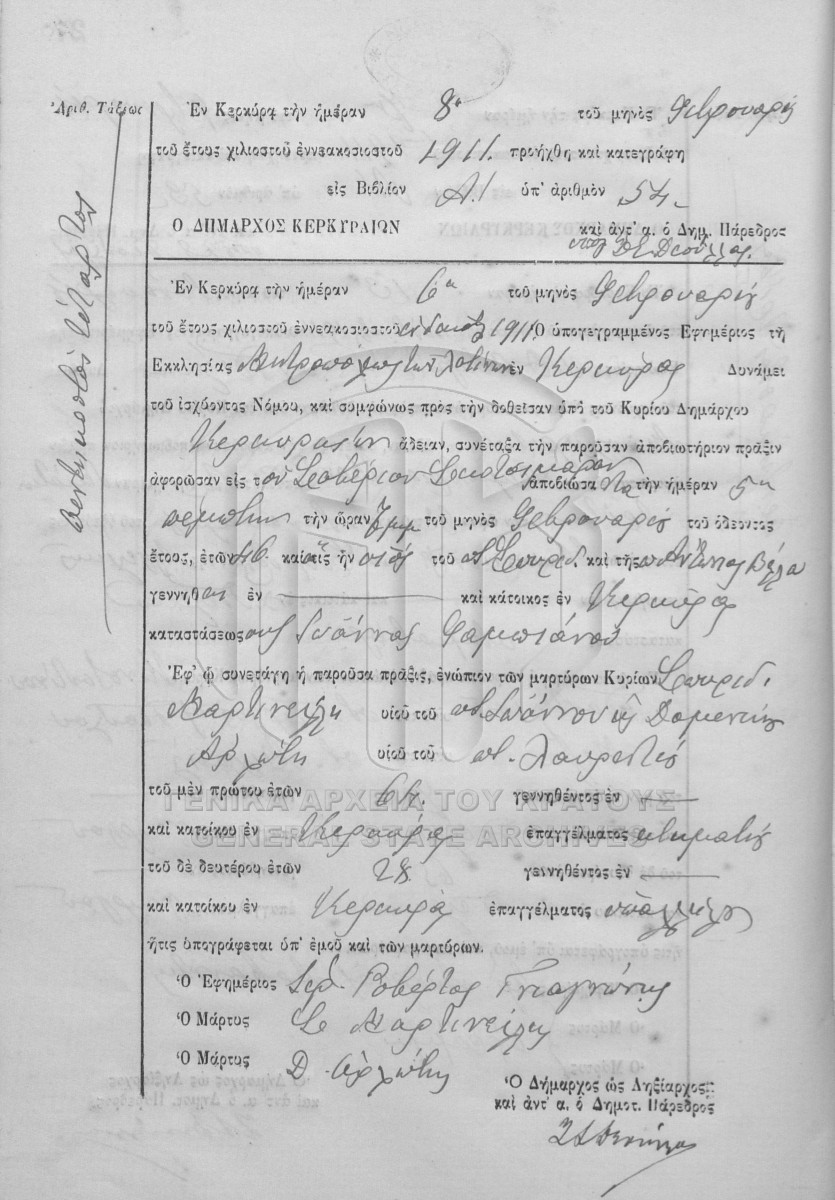 Ἀριθ. Τάξεως
Πεντηκοστὸς τέταρτος
Ἐν Κερκύρᾳ τὴν ἡμέραν 8η τοῦ μηνὸς Φεβρουαρίου
τοῦ ἔτους χιλιοστοῦ ἐννεακοσιοστοῦ 1911. προήχθη καὶ κατεγράφη
εἰς Βιβλίον Α.1 ὑπ' ἀριθμὸν 54
Ὁ ΔΗΜΑΡΧΟΣ ΚΕΡΚΥΡΑΙΩΝ καὶ ἀντ' α. ὁ Δημ. Πάρεδρος
Ἐν Κερκύρᾳ τὴν ἡμέραν 6η τοῦ μηνὸς Φεβρουαρίου
τοῦ ἔτους χιλιοστοῦ ἐννεακοσιοστοῦ ἑνδεκάτου 1911 Ὁ ὑπογεγραμμένος Ἐφημέριος τῆς
Ἐκκλησίας Μητροπόλεως τῶν Λατίνων ἐν Κερκύρᾳ Δυνάμει
τοῦ ἰσχύοντος Νόμου, καὶ συμφώνως πρὸς τὴν δοθεῖσαν ὑπὸ τοῦ Κυρίου Δημάρχου
Κερκυραίων ἄδειαν, συνέταξα τὴν παροῦσαν ἀποβιωτήριον πρᾶξιν
ἀφορῶσαν εἰς τὸν Σαβέριον ἀποβιώσαντα τὴν ἡμέραν 5ην
πέμπτην τὴν ὥραν 7 μμ τοῦ μηνὸς Φεβρουαρίου τοῦ ὁδεύοντος
ἔτους, ἐτῶν 46 καὶ εἰς ἣν υἱὸς τοῦ π. Σπυρίδ. καὶ τῆς Βέλλα
γεννηθεὶς ἐν καὶ κάτοικος ἐν Κερκύρᾳ
καταστάσεως Ἰωάννας
Ἐφ' ᾧ συνετάγη ἡ παροῦσα πρᾶξις, ἐνώπιον τῶν μαρτύρων Κυρίων Σπυρίδ.
Μαρτινέλλη υἱοῦ τοῦ π. Ἰωάννου κ Δομενίκου
Ἀρχώτη υἱοῦ τοῦ π. Λαυρεντίου
τοῦ μὲν πρώτου ἐτῶν 64. γεννηθέντος ἐν
καὶ κατοίκου ἐν Κερκύρᾳ ἐπαγγέλματος κτηματίου
τοῦ δὲ δευτέρου ἐτῶν 28 γεννηθέντος ἐν
καὶ κατοίκου ἐν Κερκύρᾳ ἐπαγγέλματος ὑπαλλήλου
ἥτις ὑπογράφεται ὑπ' ἐμοῦ καὶ τῶν μαρτύρων.
Ὁ Ἐφημέριος Ἱερ. Ροβέρτος
Ὁ Μάρτυς Σ Μαρτινέλλη
Ὁ Μάρτυς Δ. Ἀρχώτης
Ὁ Δήμαρχος ὡς Ληξίαρχος
καὶ ἀντ' α. ὁ Δημοτ. Πάρεδρος
ΓΕΝΙΚΑ ΑΡΧΕΙΑ ΤΟΥ ΚΡΑΤΟΥΣ
GENERAL STATE ARCHIVES